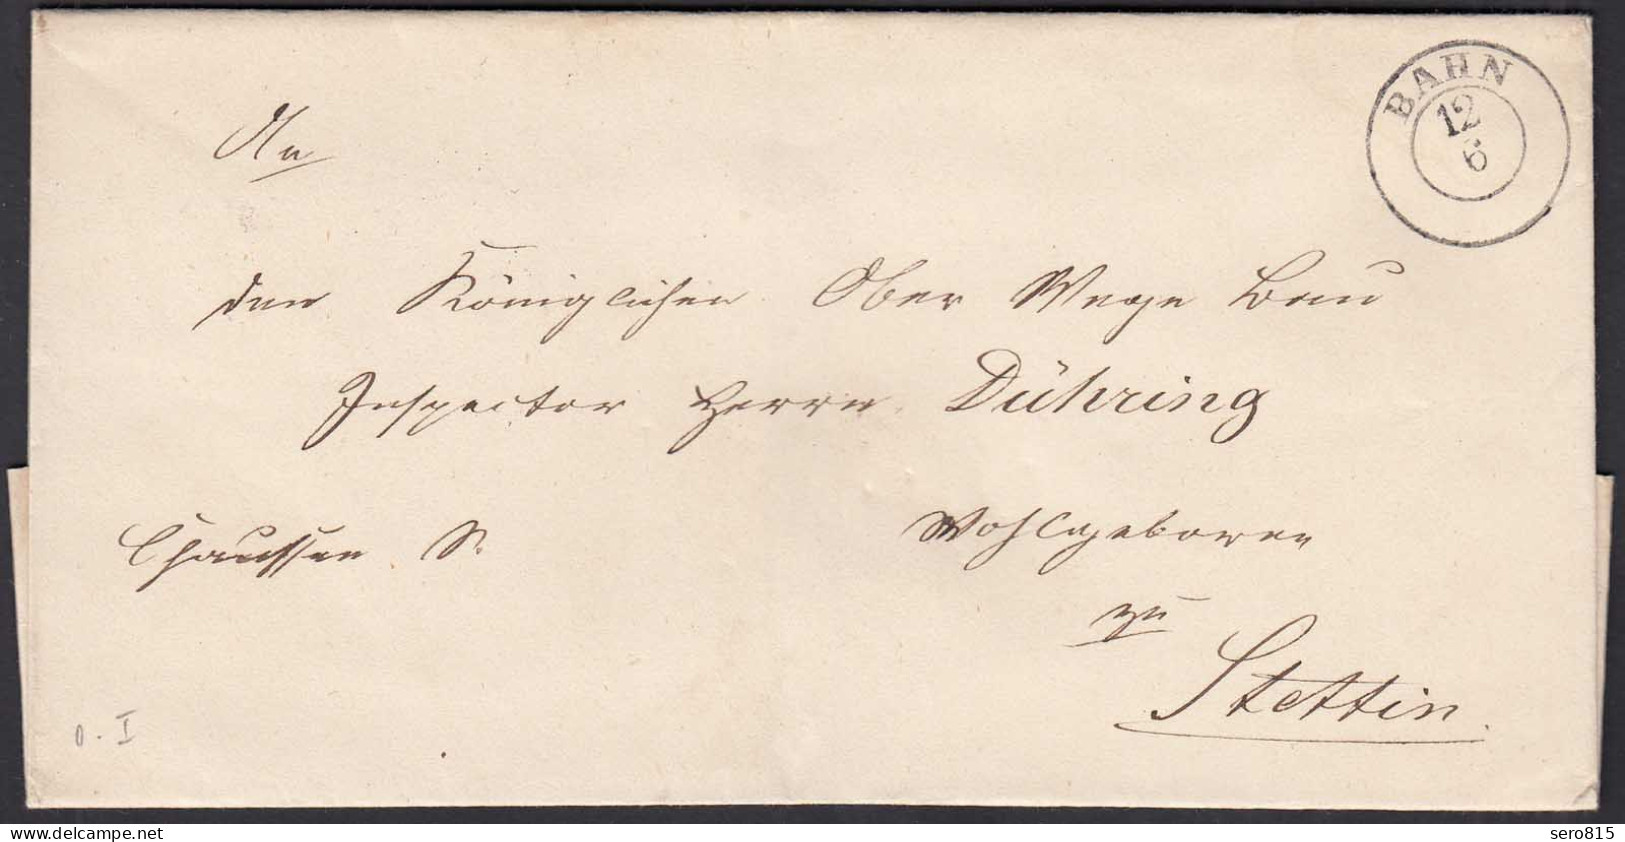 BAHN
12
6
An
den Königlichen Ober Wege Bau
Inspector Herrn Dühring
Wohlgeboren
Chaussee S.
zu
Stettin.
0. I
www.delcampe.net
sero815